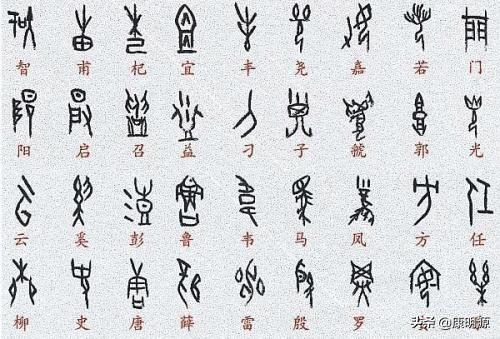 智 甫 杞 宜 丰 尧 嘉 若 门
阳 启 召 益 刁 子 虢 郭 光
云 奚 彭 鲁 韦 马 凤 方 任
柳 史 唐 薛 雷 殷 罗
头条 @康明源